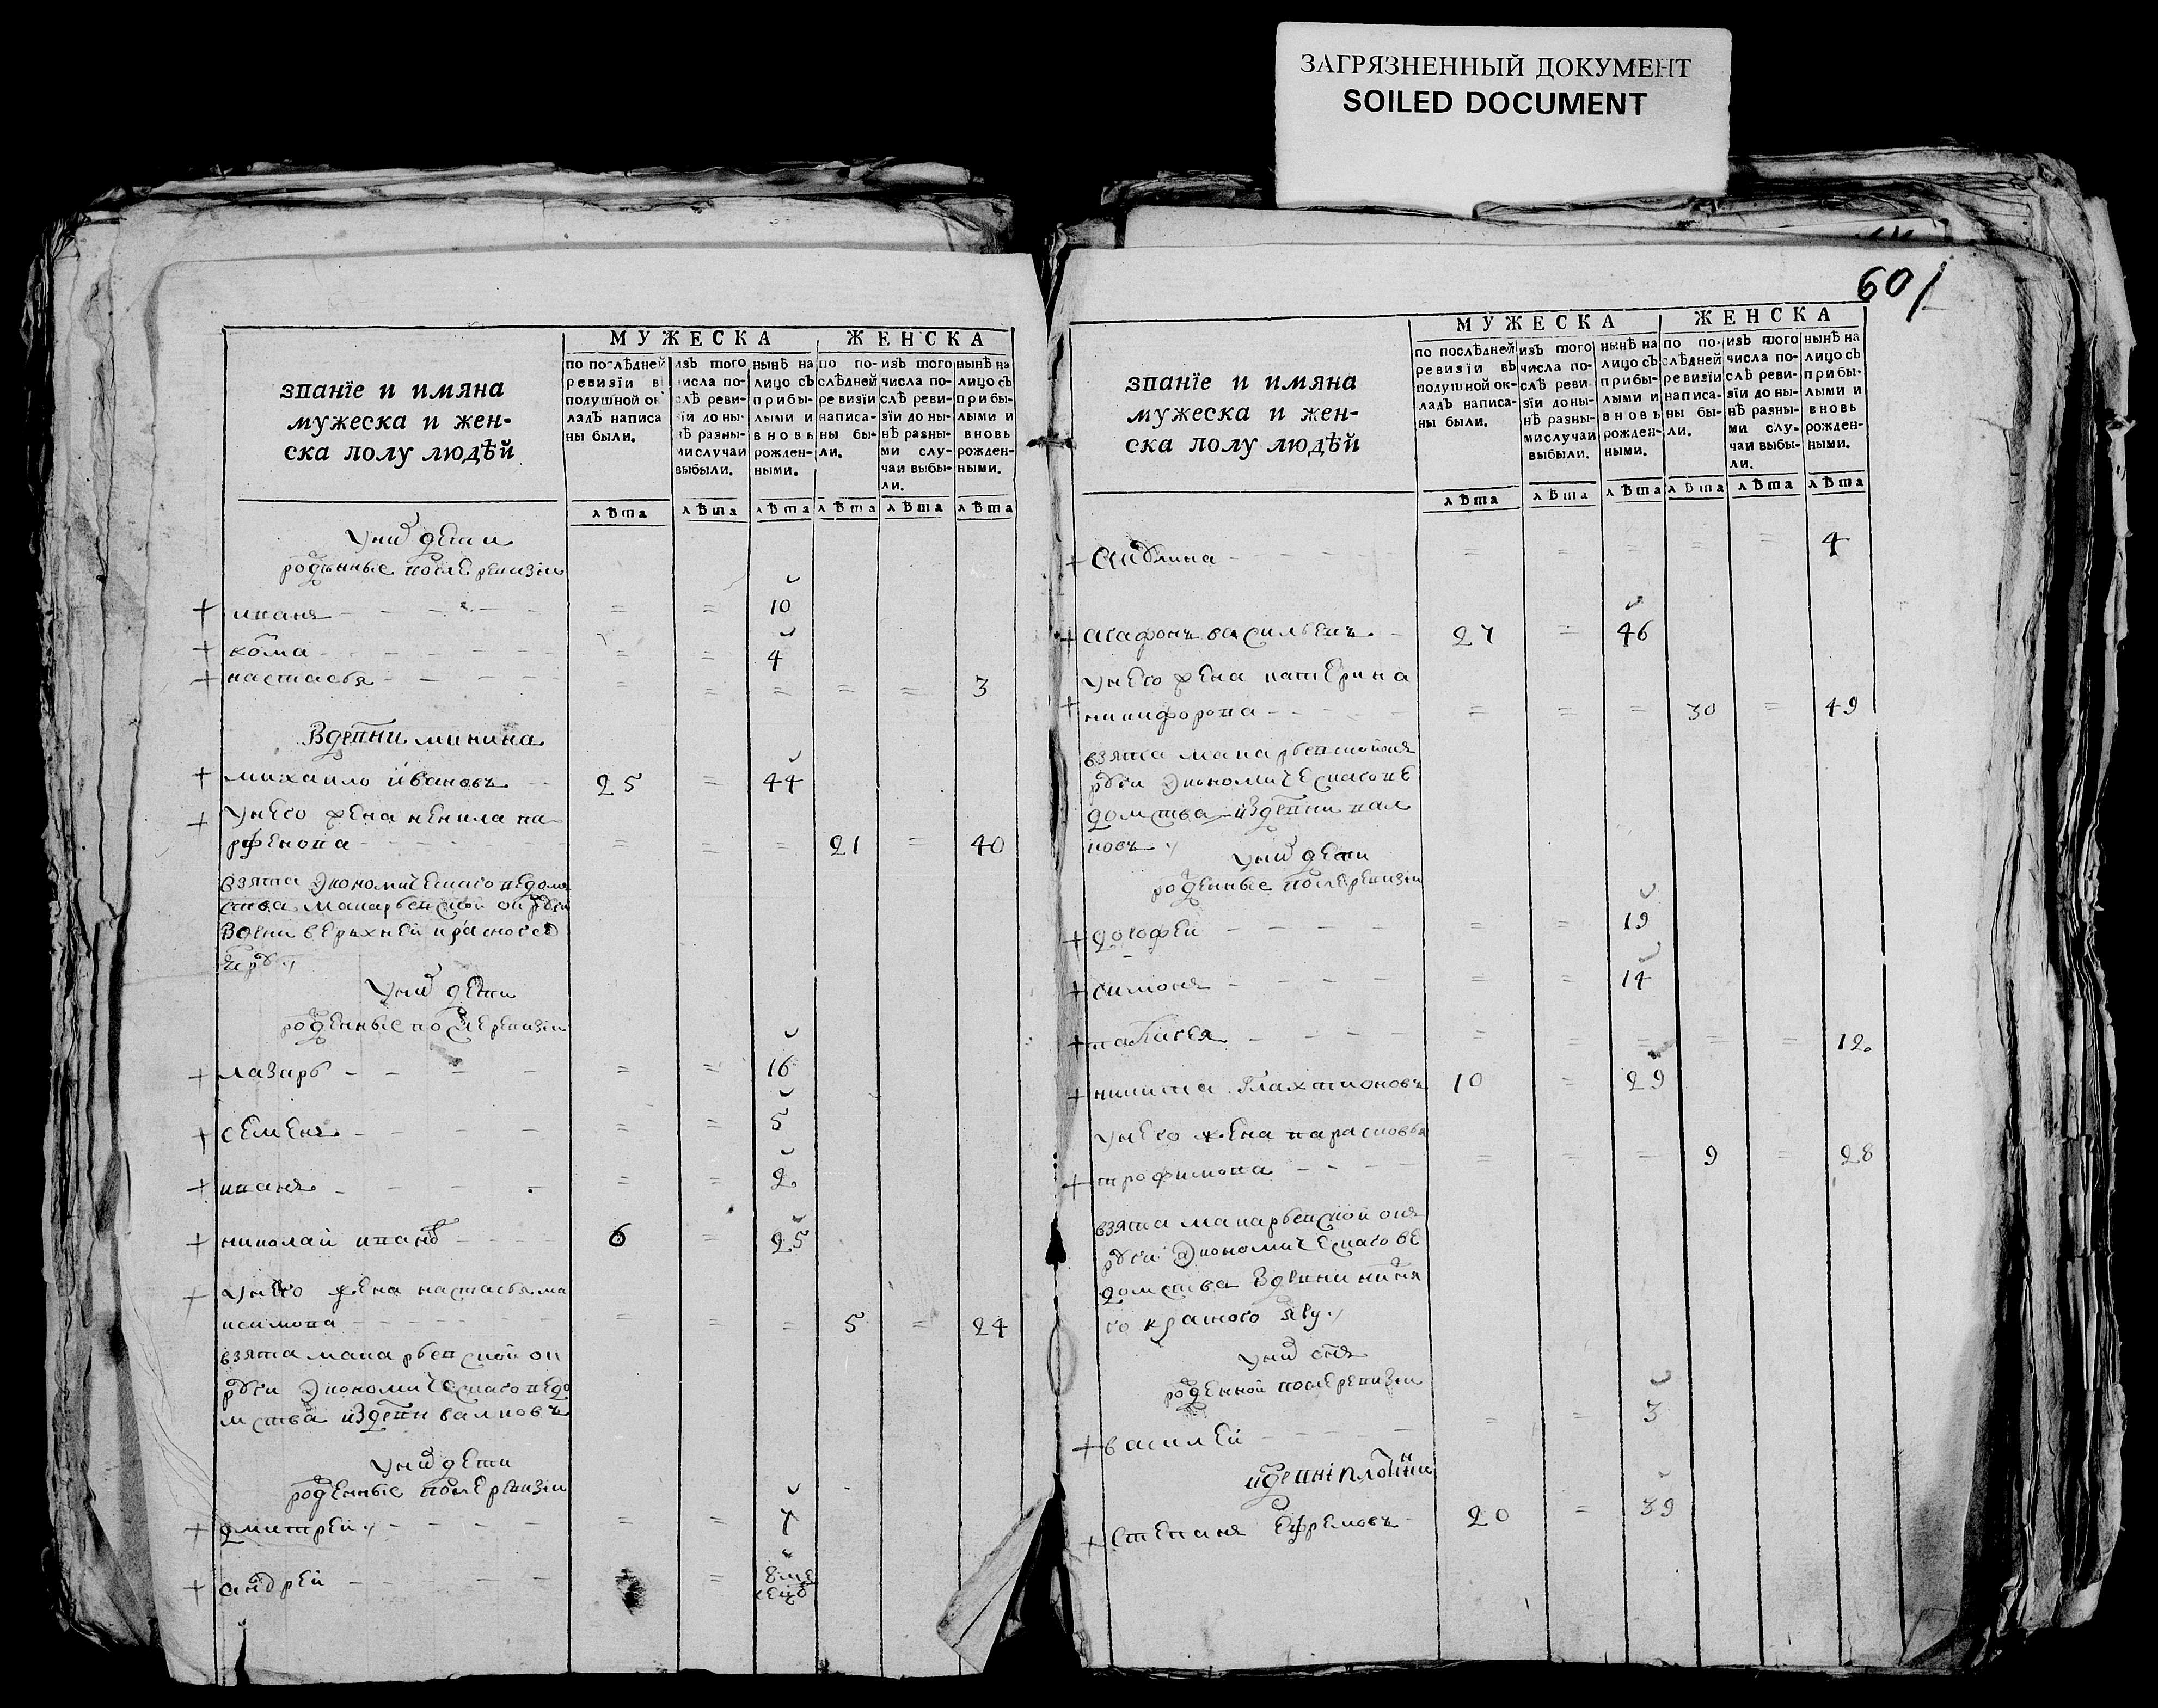 ЗАГРЯЗНЕННЫЙ ДОКУМЕНТ
SOILED DOCUMENT
званїе и имяна
мужеска и жен-
ска полу людѣй
МУЖЕСКА
ЖЕНСКА
по послѣдней ревизїи въ подушной окладъ написаны были.
изъ того числа послѣ ревизїи до нынѣ разными случаи выбыли.
нынѣ на лицо съ прибылыми и вновь рожденными.
по послѣдней ревизїи написаны были.
изъ того числа послѣ ревизїи до нынѣ разными случаи выбыли.
нынѣ на лицо съ прибылыми и вновь рожденными.
лѣта лѣта лѣта лѣта лѣта лѣта
уних дети
рожденные после ревизіи
+ иванъ = = 10
+ козма = = 4
+ настасья = = = = = 3
Вдевни минина
+ михаило ивановъ 25 = 44
+ унего жена ненила па
рфенова = = = 21 = 40
взята экономическаго ведом
ства макарьевской
вдевни верхней красно
уних дети
рожденные после ревизіи
+ лазарь = = 16
+ семенъ = = 5
+ иванъ = = 2
+ николай иванов 6 = 25
+ унего жена настасья ма
ксимова = = = 5 = 24
взята макарьевской ок
руги экономическаго ведо
мства издевни валковъ
уних дети
рожденные после ревизіи
+ дмитрей = = 7
+ андрей = 8 ме
сецов
601
званїе и имяна
мужеска и жен-
ска полу людѣй
МУЖЕСКА
ЖЕНСКА
по послѣдней ревизїи въ подушной окладъ написаны были.
изъ того числа послѣ ревизїи до нынѣ разными случаи выбыли.
нынѣ на лицо съ прибылыми и вновь рожденными.
по послѣдней ревизїи написаны были.
изъ того числа послѣ ревизїи до нынѣ разными случаи выбыли.
нынѣ на лицо съ прибылыми и вновь рожденными.
лѣта лѣта лѣта лѣта лѣта лѣта
+ = = = = = 4
+ агафонъ васильевъ 27 = 46
унего жена катерина
+ никифорова = = = 30 = 49
взята макарьевской ок
руги экономическаго ве
домства издевни вал
ковъ
уних дети
рожденные после ревизіи
+ дорофей = = 19
+ симонъ = = 14
+ = = = = = 12
+ никита Галахтионовъ 10 = 29
унего жена парасковья
+ трофимова = = = 9 = 28
взята макарьевской ок
руги экономическаго ве
домства вдевни нижня
го красного яру
уних снъ
рожденной после ревизіи
+ василей = = 3
+ Степанъ Ефремовъ 20 = 39